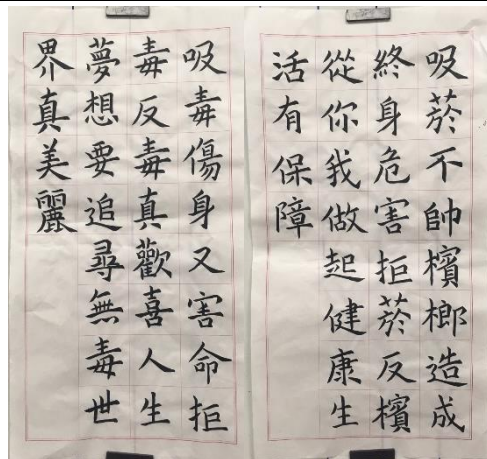 吸菸不帥檳榔造成
終身危害拒菸反檳
從你我做起健康生
活有保障
吸毒傷身又害命拒
毒反毒真歡喜人生
夢想要追尋無毒世
界真美麗